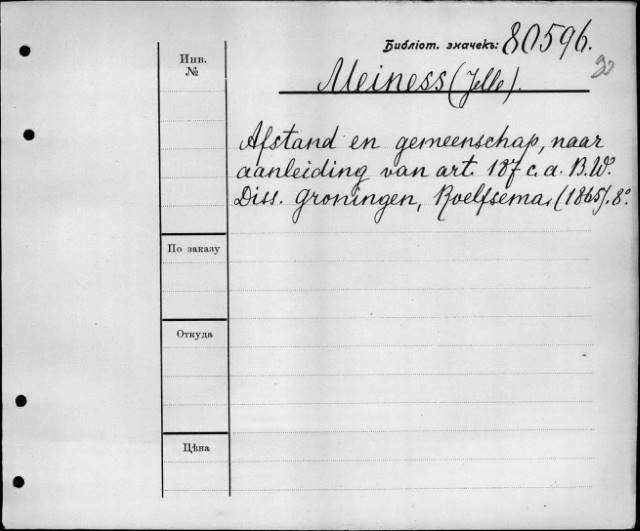 Библіот. значекъ: 80596.
30
Инв.
№
Meiness (Jelle).
Afstand en gemeenschap, naar
aanleiding van art. 187 c. a. B. W.
Diss. Groningen, Roelfsema, (1865). 8°.
По заказу
Откуда
Цѣна